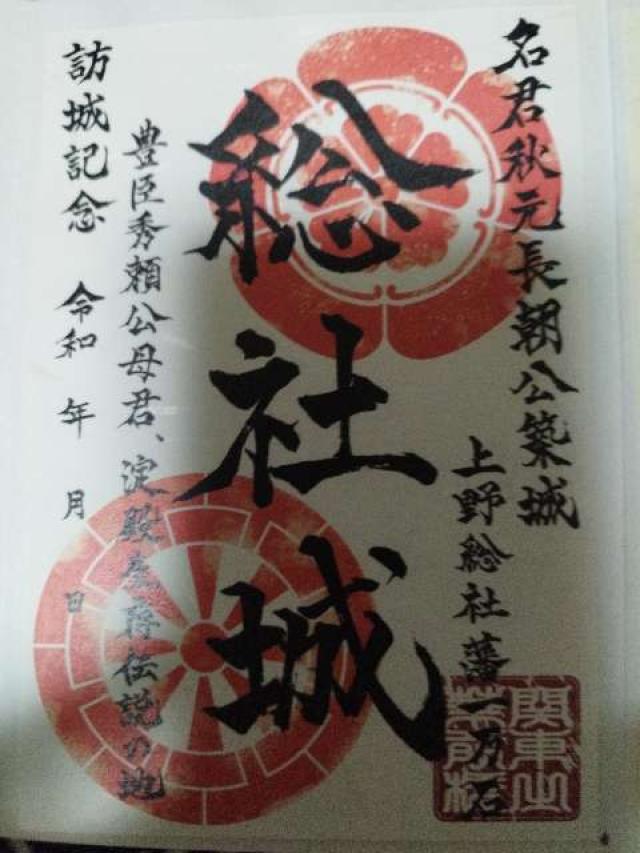 名君秋元長朝公築城
上野総社藩一万石
総社城
豊臣秀頼公母君、淀殿生存伝説の地
訪城記念 令和 年 月 日
関東出